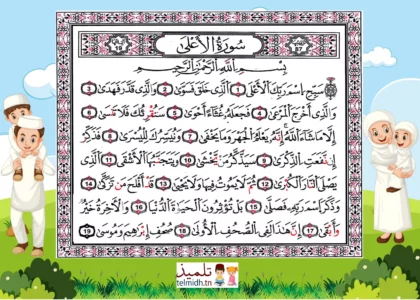 سُورَةُ الأَعْلَى
87
19
بِسْمِ اللَّهِ الرَّحْمَٰنِ الرَّحِيمِ
سَبِّحِ اسْمَ رَبِّكَ الْأَعْلَى 1 الَّذِي خَلَقَ فَسَوَّىٰ 2 وَالَّذِي قَدَّرَ فَهَدَىٰ 3
وَالَّذِي أَخْرَجَ الْمَرْعَىٰ 4 فَجَعَلَهُ غُثَاءً أَحْوَىٰ 5 سَنُقْرِئُكَ فَلَا تَنسَىٰ 6
إِلَّا مَا شَاءَ اللَّهُ إِنَّهُ يَعْلَمُ الْجَهْرَ وَمَا يَخْفَىٰ 7 وَنُيَسِّرُكَ لِلْيُسْرَىٰ 8 فَذَكِّرْ
إِن نَّفَعَتِ الذِّكْرَىٰ 9 سَيَذَّكَّرُ مَن يَخْشَىٰ 10 وَيَتَجَنَّبُهَا الْأَشْقَى 11 الَّذِي
يَصْلَى النَّارَ الْكُبْرَىٰ 12 ثُمَّ لَا يَمُوتُ فِيهَا وَلَا يَحْيَىٰ 13 قَدْ أَفْلَحَ مَن تَزَكَّىٰ 14
وَذَكَرَ اسْمَ رَبِّهِ فَصَلَّىٰ 15 بَلْ تُؤْثِرُونَ الْحَيَاةَ الدُّنْيَا 16 وَالْآخِرَةُ خَيْرٌ
وَأَبْقَىٰ 17 إِنَّ هَٰذَا لَفِي الصُّحُفِ الْأُولَىٰ 18 صُحُفِ إِبْرَاهِيمَ وَمُوسَىٰ 19
تلميذ
telmidh.tn